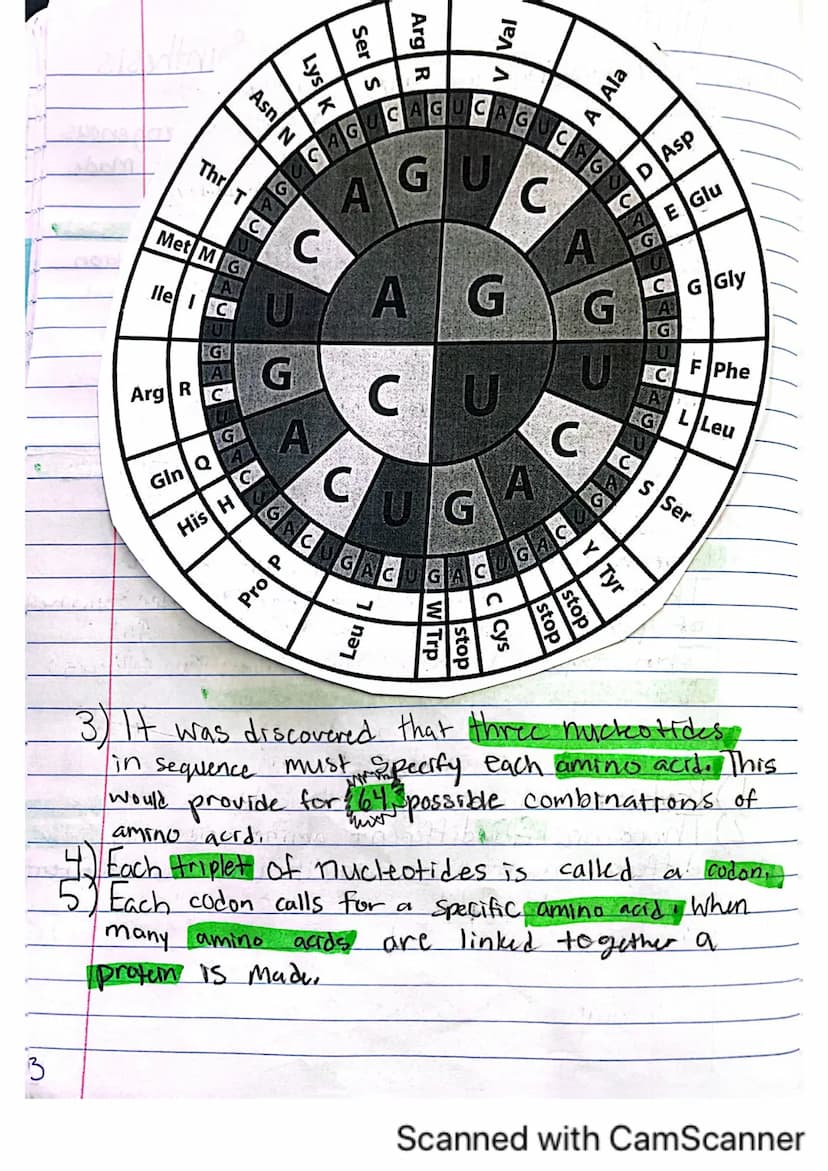 Val V
Ala A
Asp D
Glu E
Gly G
Phe F
Leu L
Ser S
Tyr Y
stop
stop
Cys C
stop
Trp W
Leu L
Pro P
His H
Gln Q
Arg R
Ile I
Met M
Thr T
Asn N
Lys K
Ser S
Arg R
A G U C
U C A G
U C A G
U C A G
U C A G
3) It was discovered that three nucleotides
in sequence must specify each amino acid. This
would provide for 64 possible combinations of
amino acid.
4) Each triplet of nucleotides is called a codon.
5) Each codon calls for a specific amino acid. When
many amino acids are linked together a
protein is made.
3
Scanned with CamScanner